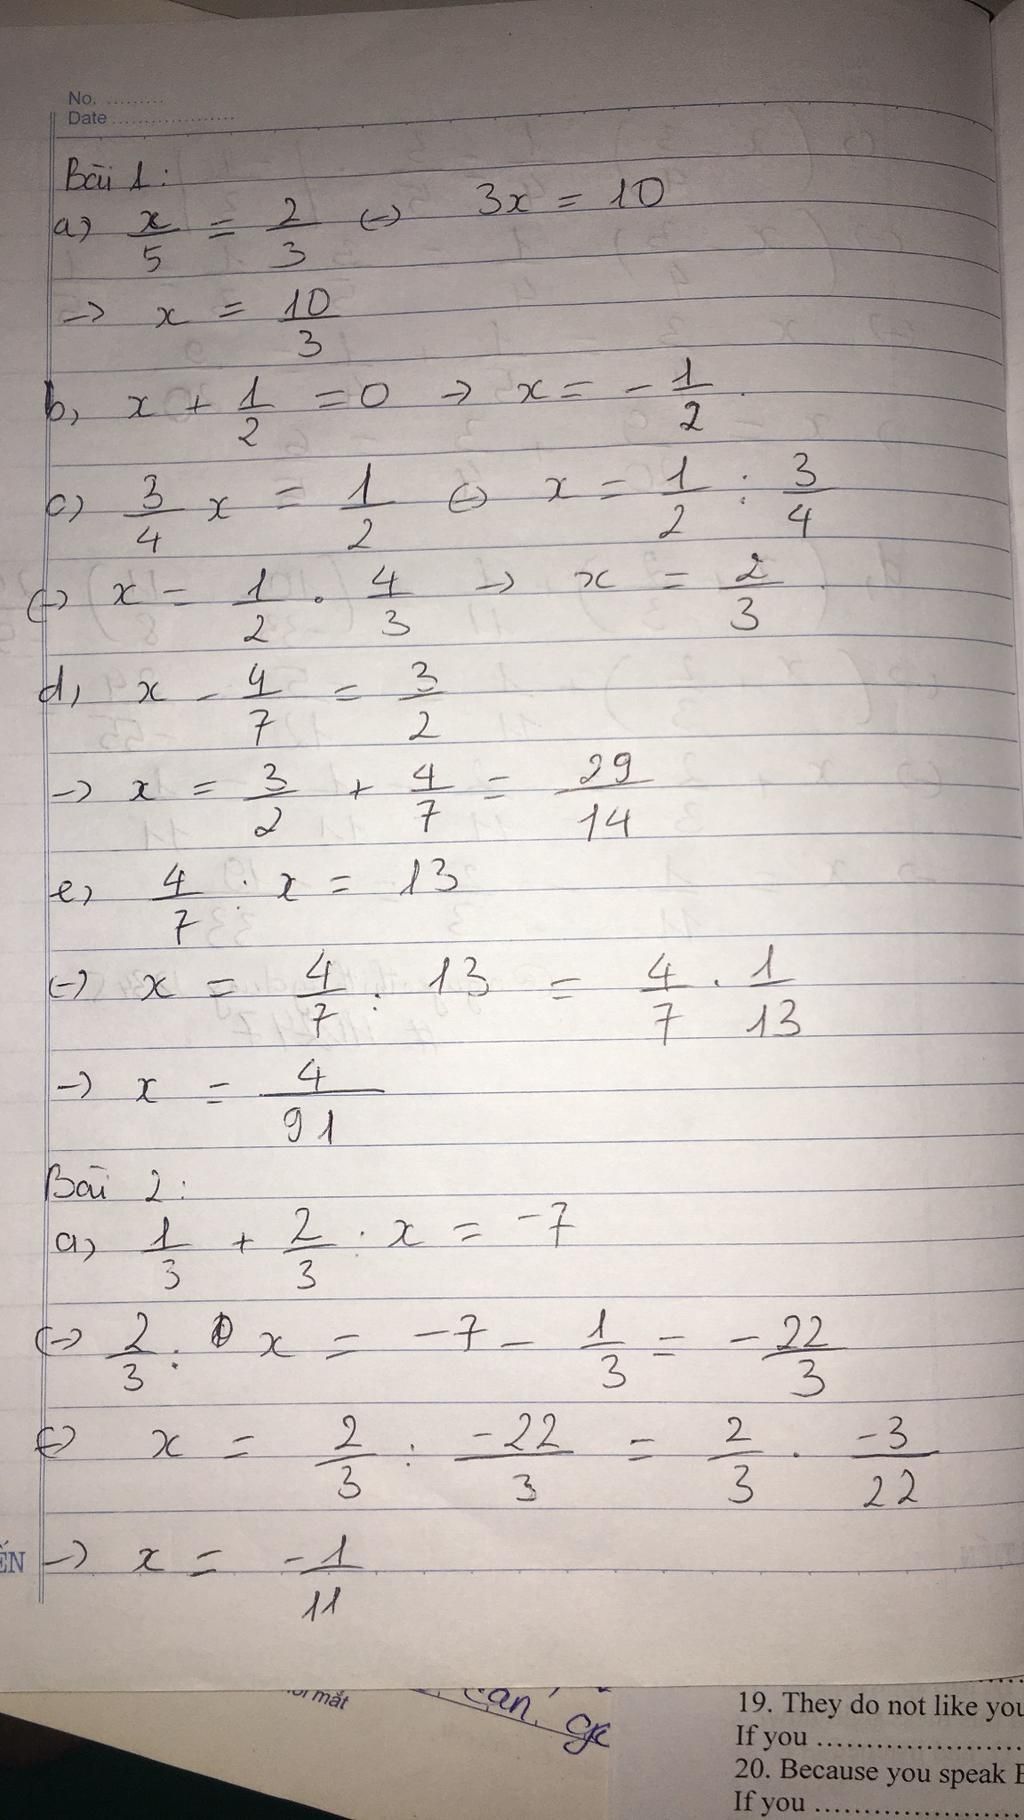 No. .........
Date ..................
Bài 1:
a, x/5 = 2/3 (-) 3x = 10
-> x = 10/3
b, x + 1/2 = 0 -> x = - 1/2.
c) 3/4 x = 1/2 (-) x = 1/2 : 3/4
(-) x = 1/2 . 4/3 -> x = 2/3.
d, x - 4/7 = 3/2
-> x = 3/2 + 4/7 = 29/14
e, 4/7 : x = 13
(-) x = 4/7 : 13 = 4/7 . 1/13
-> x = 4/91
Bài 2:
a, 1/3 + 2/3 : x = -7
(-) 2/3 : x = -7 - 1/3 = - 22/3
(-) x = 2/3 : -22/3 = 2/3 . -3/22
-> x = -1/11
ẾN
mắt
19. They do not like you
If you ......................
20. Because you speak E
If you ......................